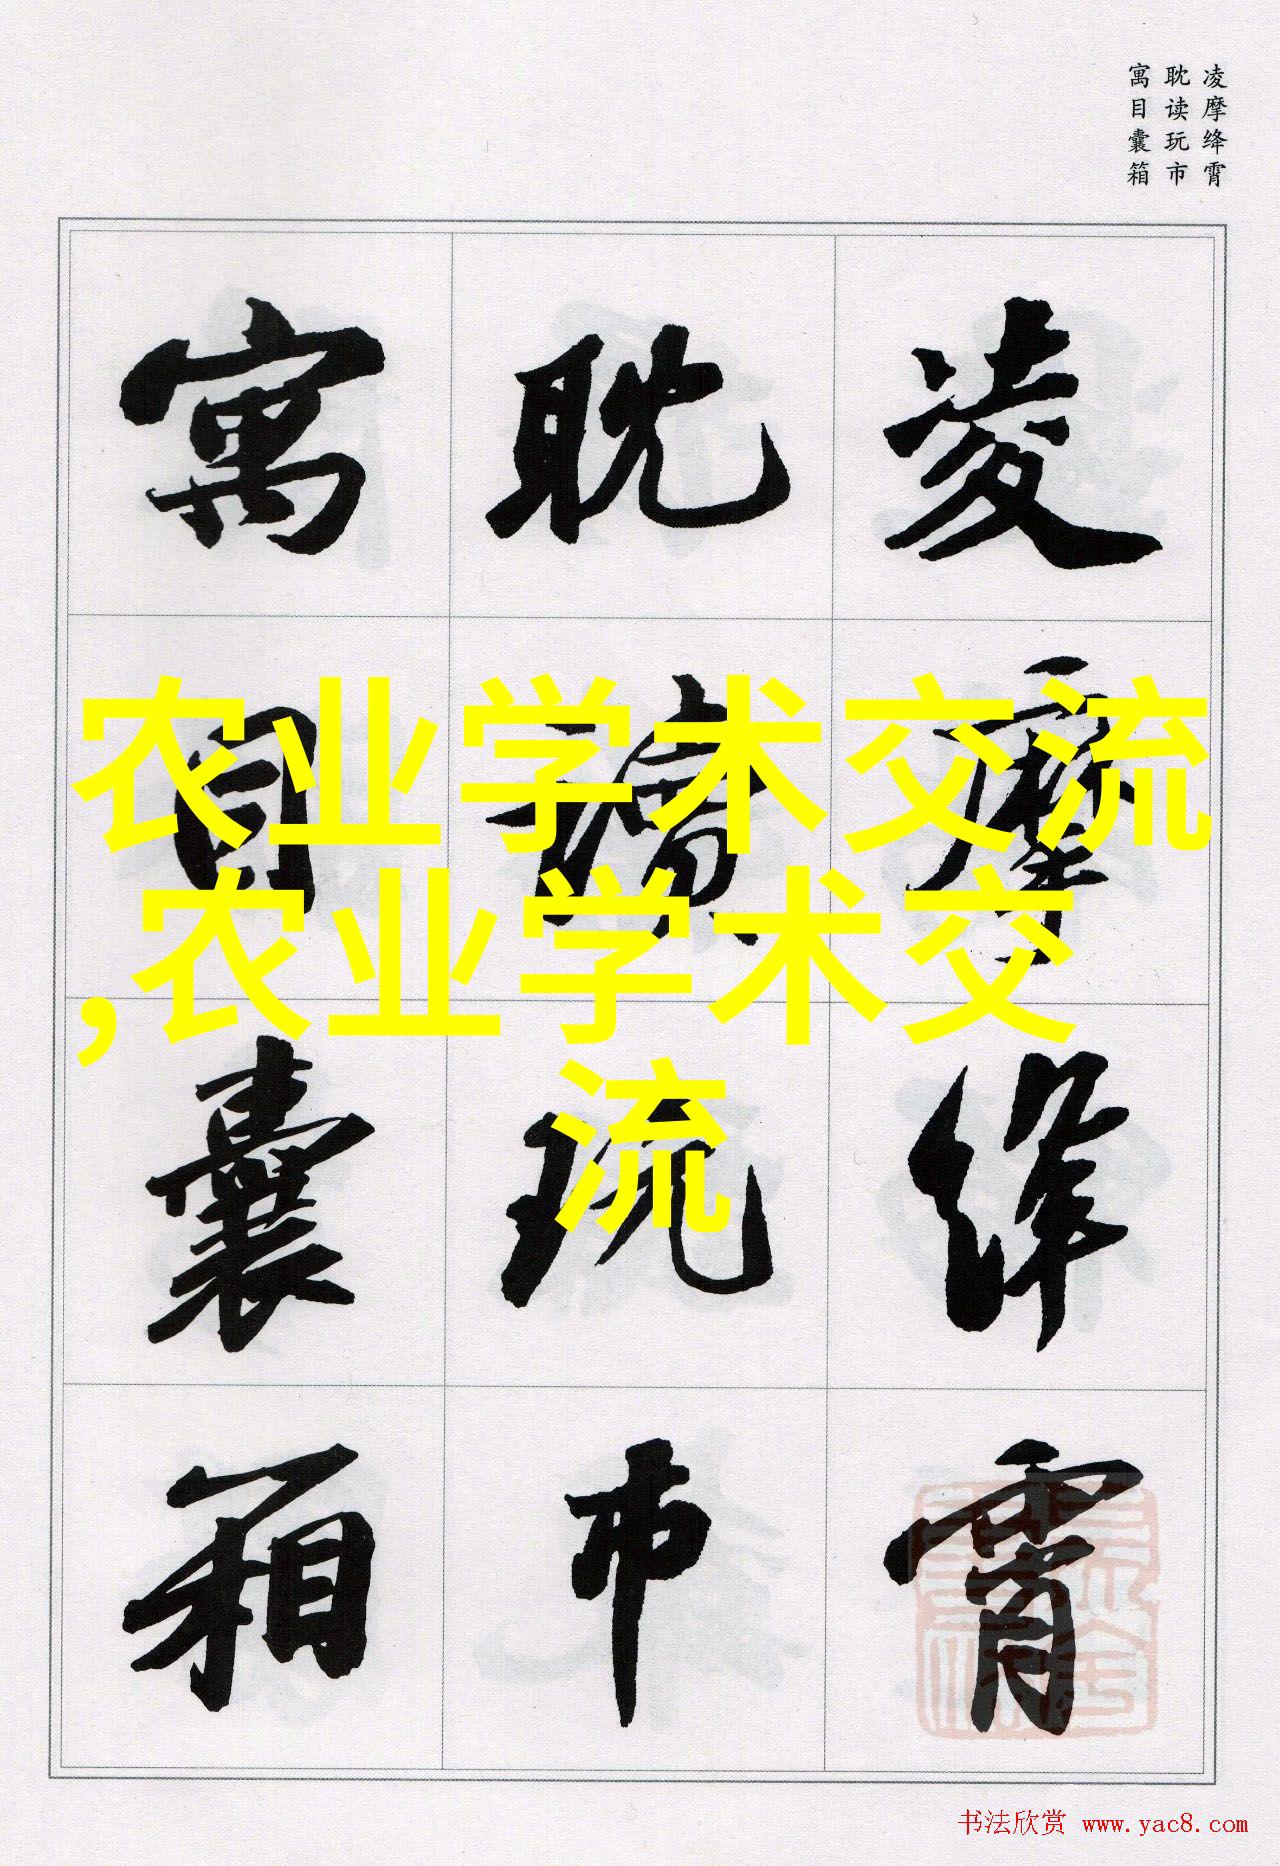 凌摩绛霄
耽读玩市
寓目囊箱
凌摩绛霄
耽读玩市
寓目囊箱
农业学术交流
,农业学术交
流
书法欣赏 www.yac8.com